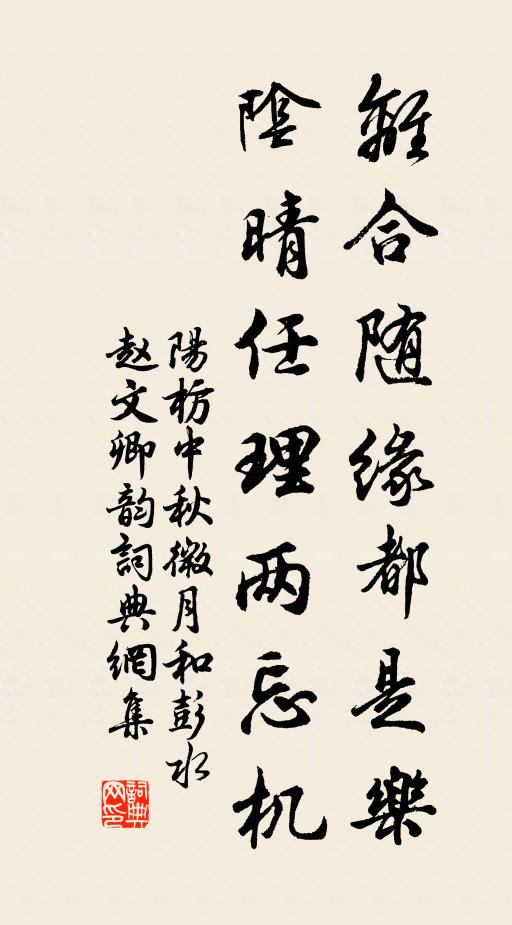 離合随缘都是樂
陰晴任理两忘机
陽枥中秋微月和彭水
赵文卿韵詞典網集
詞典网印